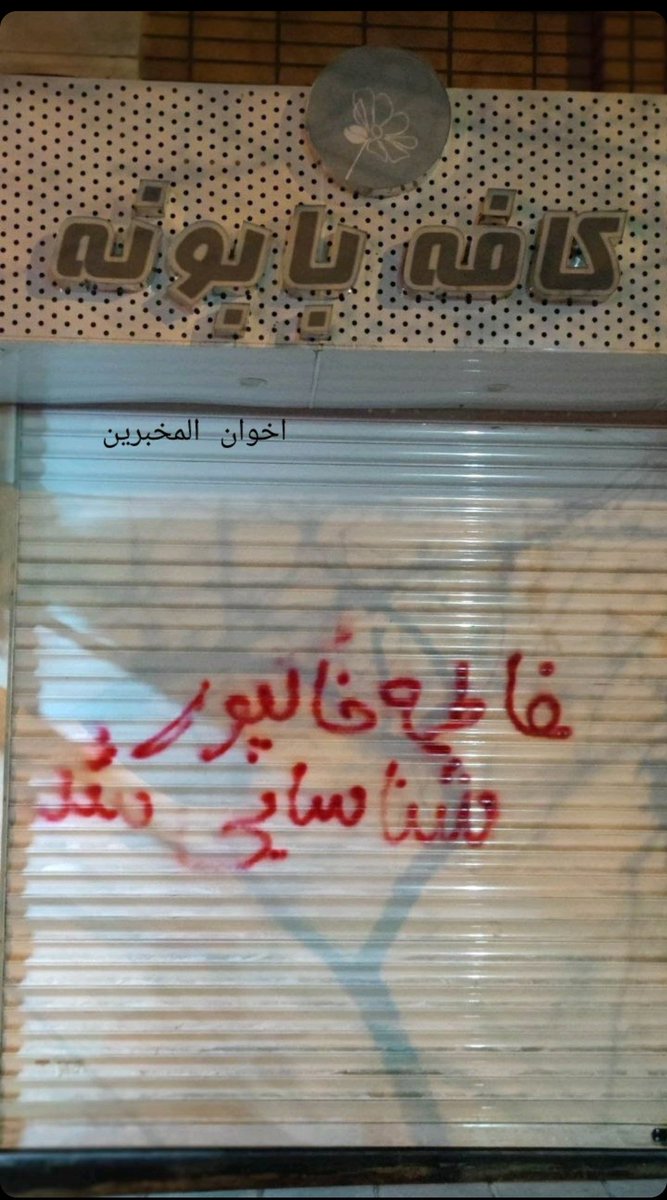 کافه بابونه
اخوان المخبرين
فاطمه خانپور
شناسایی شد